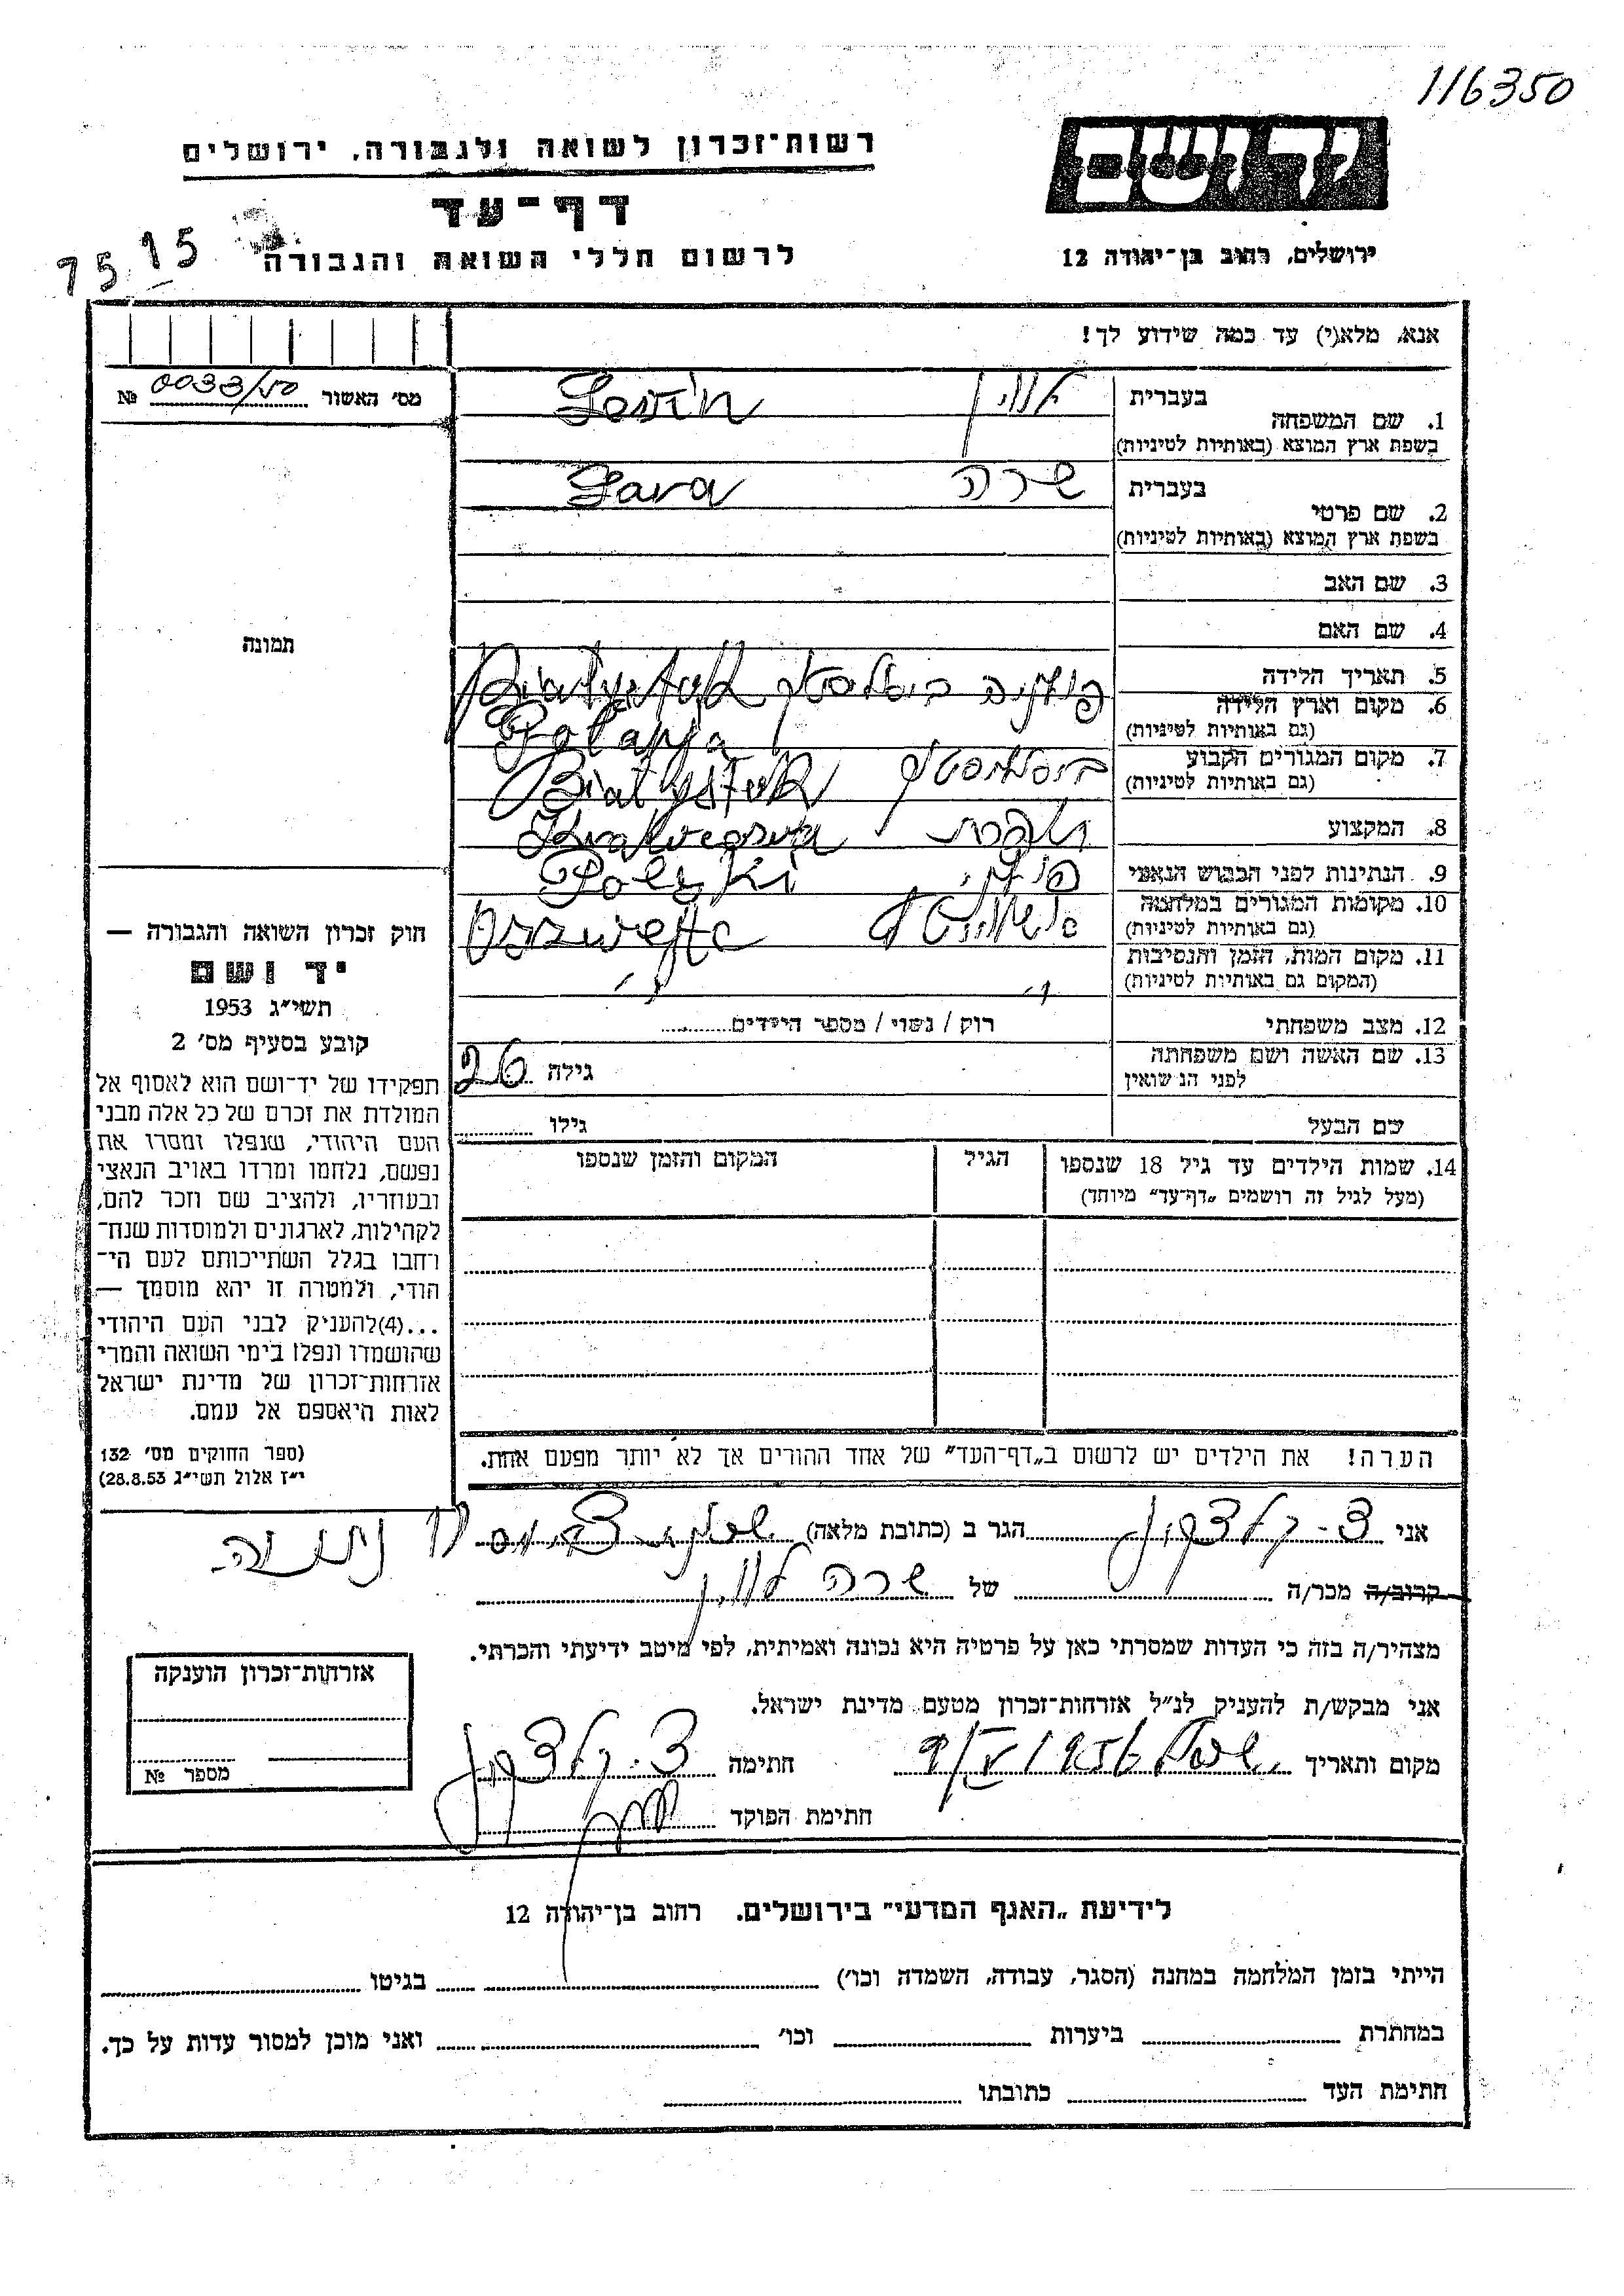 116350
רשות־זכרון לשואה ולגבורה, ירושלים
ידושם
דף־עד
לרשום חללי השואה והגבורה
ירושלים, רחוב בן־יהודה 12
75 15
אנא, מלא(י) עד כמה שידוע לך!
מס' האשור 0033/50 №
בעברית לוין
1. שם המשפחה
בשפת ארץ המוצא (באותיות לטיניות)
בעברית שרה Sara
2. שם פרטי
בשפת ארץ המוצא (באותיות לטיניות)
3. שם האב
4. שם האם
תמונה
5. תאריך הלידה
6. מקום וארץ הלידה
(גם באותיות לטיניות)
7. מקום המגורים הקבוע
(גם באותיות לטיניות)
8. המקצוע
9. הנתינות לפני הכבוש הנאצי
10. מקומות המגורים במלחמה
(גם באותיות לטיניות)
11. מקום המות, הזמן והנסיבות
(המקום גם באותיות לטיניות)
12. מצב משפחתי רוק / נשוי / מספר הילדים
13. שם האשה ושם משפחתה
לפני הנשואין
גילה 26
שם הבעל גילו
14. שמות הילדים עד גיל 18 שנספו הגיל המקום והזמן שנספו
(מעל לגיל זה רושמים „דף־עד" מיוחד)
הערה! את הילדים יש לרשום ב„דף־העד" של אחד ההורים אך לא יותר מפעם אחת.
חוק זכרון השואה והגבורה —
יד ושם
תשי"ג 1953
קובע בסעיף מס' 2
תפקידו של יד־ושם הוא לאסוף אל
המולדת את זכרם של כל אלה מבני
העם היהודי, שנפלו ומסרו את
נפשם, נלחמו ומרדו באויב הנאצי
ובעוזריו, ולהציב שם וזכר להם,
לקהילות, לארגונים ולמוסדות שנח־
רחבו בגלל השתייכותם לעם הי־
הודי, ולמטרה זו יהא מוסמך —
...(4)להעניק לבני העם היהודי
שהושמדו ונפלו בימי השואה והמרי
אזרחות־זכרון של מדינת ישראל
לאות היאספם אל עמם.
(ספר החוקים מס' 132
י"ז אלול תשי"ג 28.8.53)
אני הגר ב (כתובת מלאה)
קרוב/ה מכר/ה של שרה לוין
מצהיר/ה בזה כי העדות שמסרתי כאן על פרטיה היא נכונה ואמיתית, לפי מיטב ידיעתי והכרתי.
אני מבקש/ת להעניק לנ"ל אזרחות־זכרון מטעם מדינת ישראל.
מקום ותאריך חתימה
חתימת הפוקד
אזרחות־זכרון הוענקה
מספר №
לידיעת „האגף המדעי" בירושלים. רחוב בן־יהודה 12
הייתי בזמן המלחמה במחנה (הסגר, עבודה, השמדה וכו') בגיטו
במחתרת ביערות וכו' ואני מוכן למסור עדות על כך.
חתימת העד כתובתו